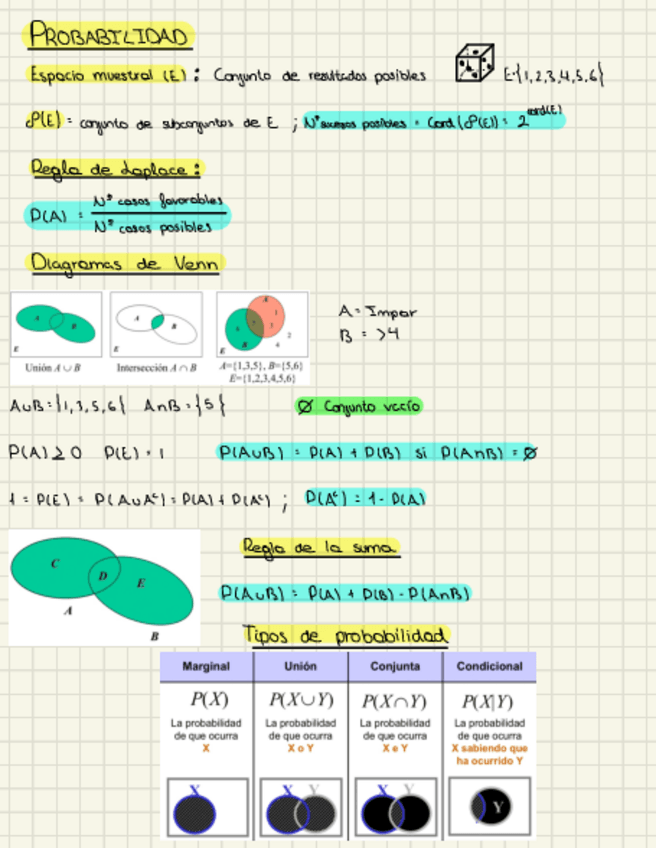 PROBABILIDAD
Espacio muestral (E): Conjunto de resultados posibles E={1,2,3,4,5,6}
P(E) = conjunto de subconjuntos de E ; Nº sucesos posibles = Card(P(E)) = 2^card(E)
Regla de Laplace:
P(A) = Nº casos favorables
Nº casos posibles
Diagramas de Venn
A B E
A B E
A 1 3 5 6 B 2 4 E
A = Impar
B = >4
Unión A ∪ B
Intersección A ∩ B
A={1,3,5}, B={5,6}
E={1,2,3,4,5,6}
A∪B = {1,3,5,6} A∩B = {5}
Ø Conjunto vacío
P(A) ≥ 0 P(E) = 1 P(A∪B) = P(A) + P(B) si P(A∩B) = Ø
1 = P(E) = P(A∪Aᶜ) = P(A) + P(Aᶜ) ; P(Aᶜ) = 1 - P(A)
C D E
A
B
Regla de la suma
P(A∪B) = P(A) + P(B) - P(A∩B)
Tipos de probabilidad
Marginal Unión Conjunta Condicional
P(X) P(X∪Y) P(X∩Y) P(X|Y)
La probabilidad de que ocurra X
La probabilidad de que ocurra X o Y
La probabilidad de que ocurra X e Y
La probabilidad de que ocurra X sabiendo que ha ocurrido Y
X X Y X Y Y